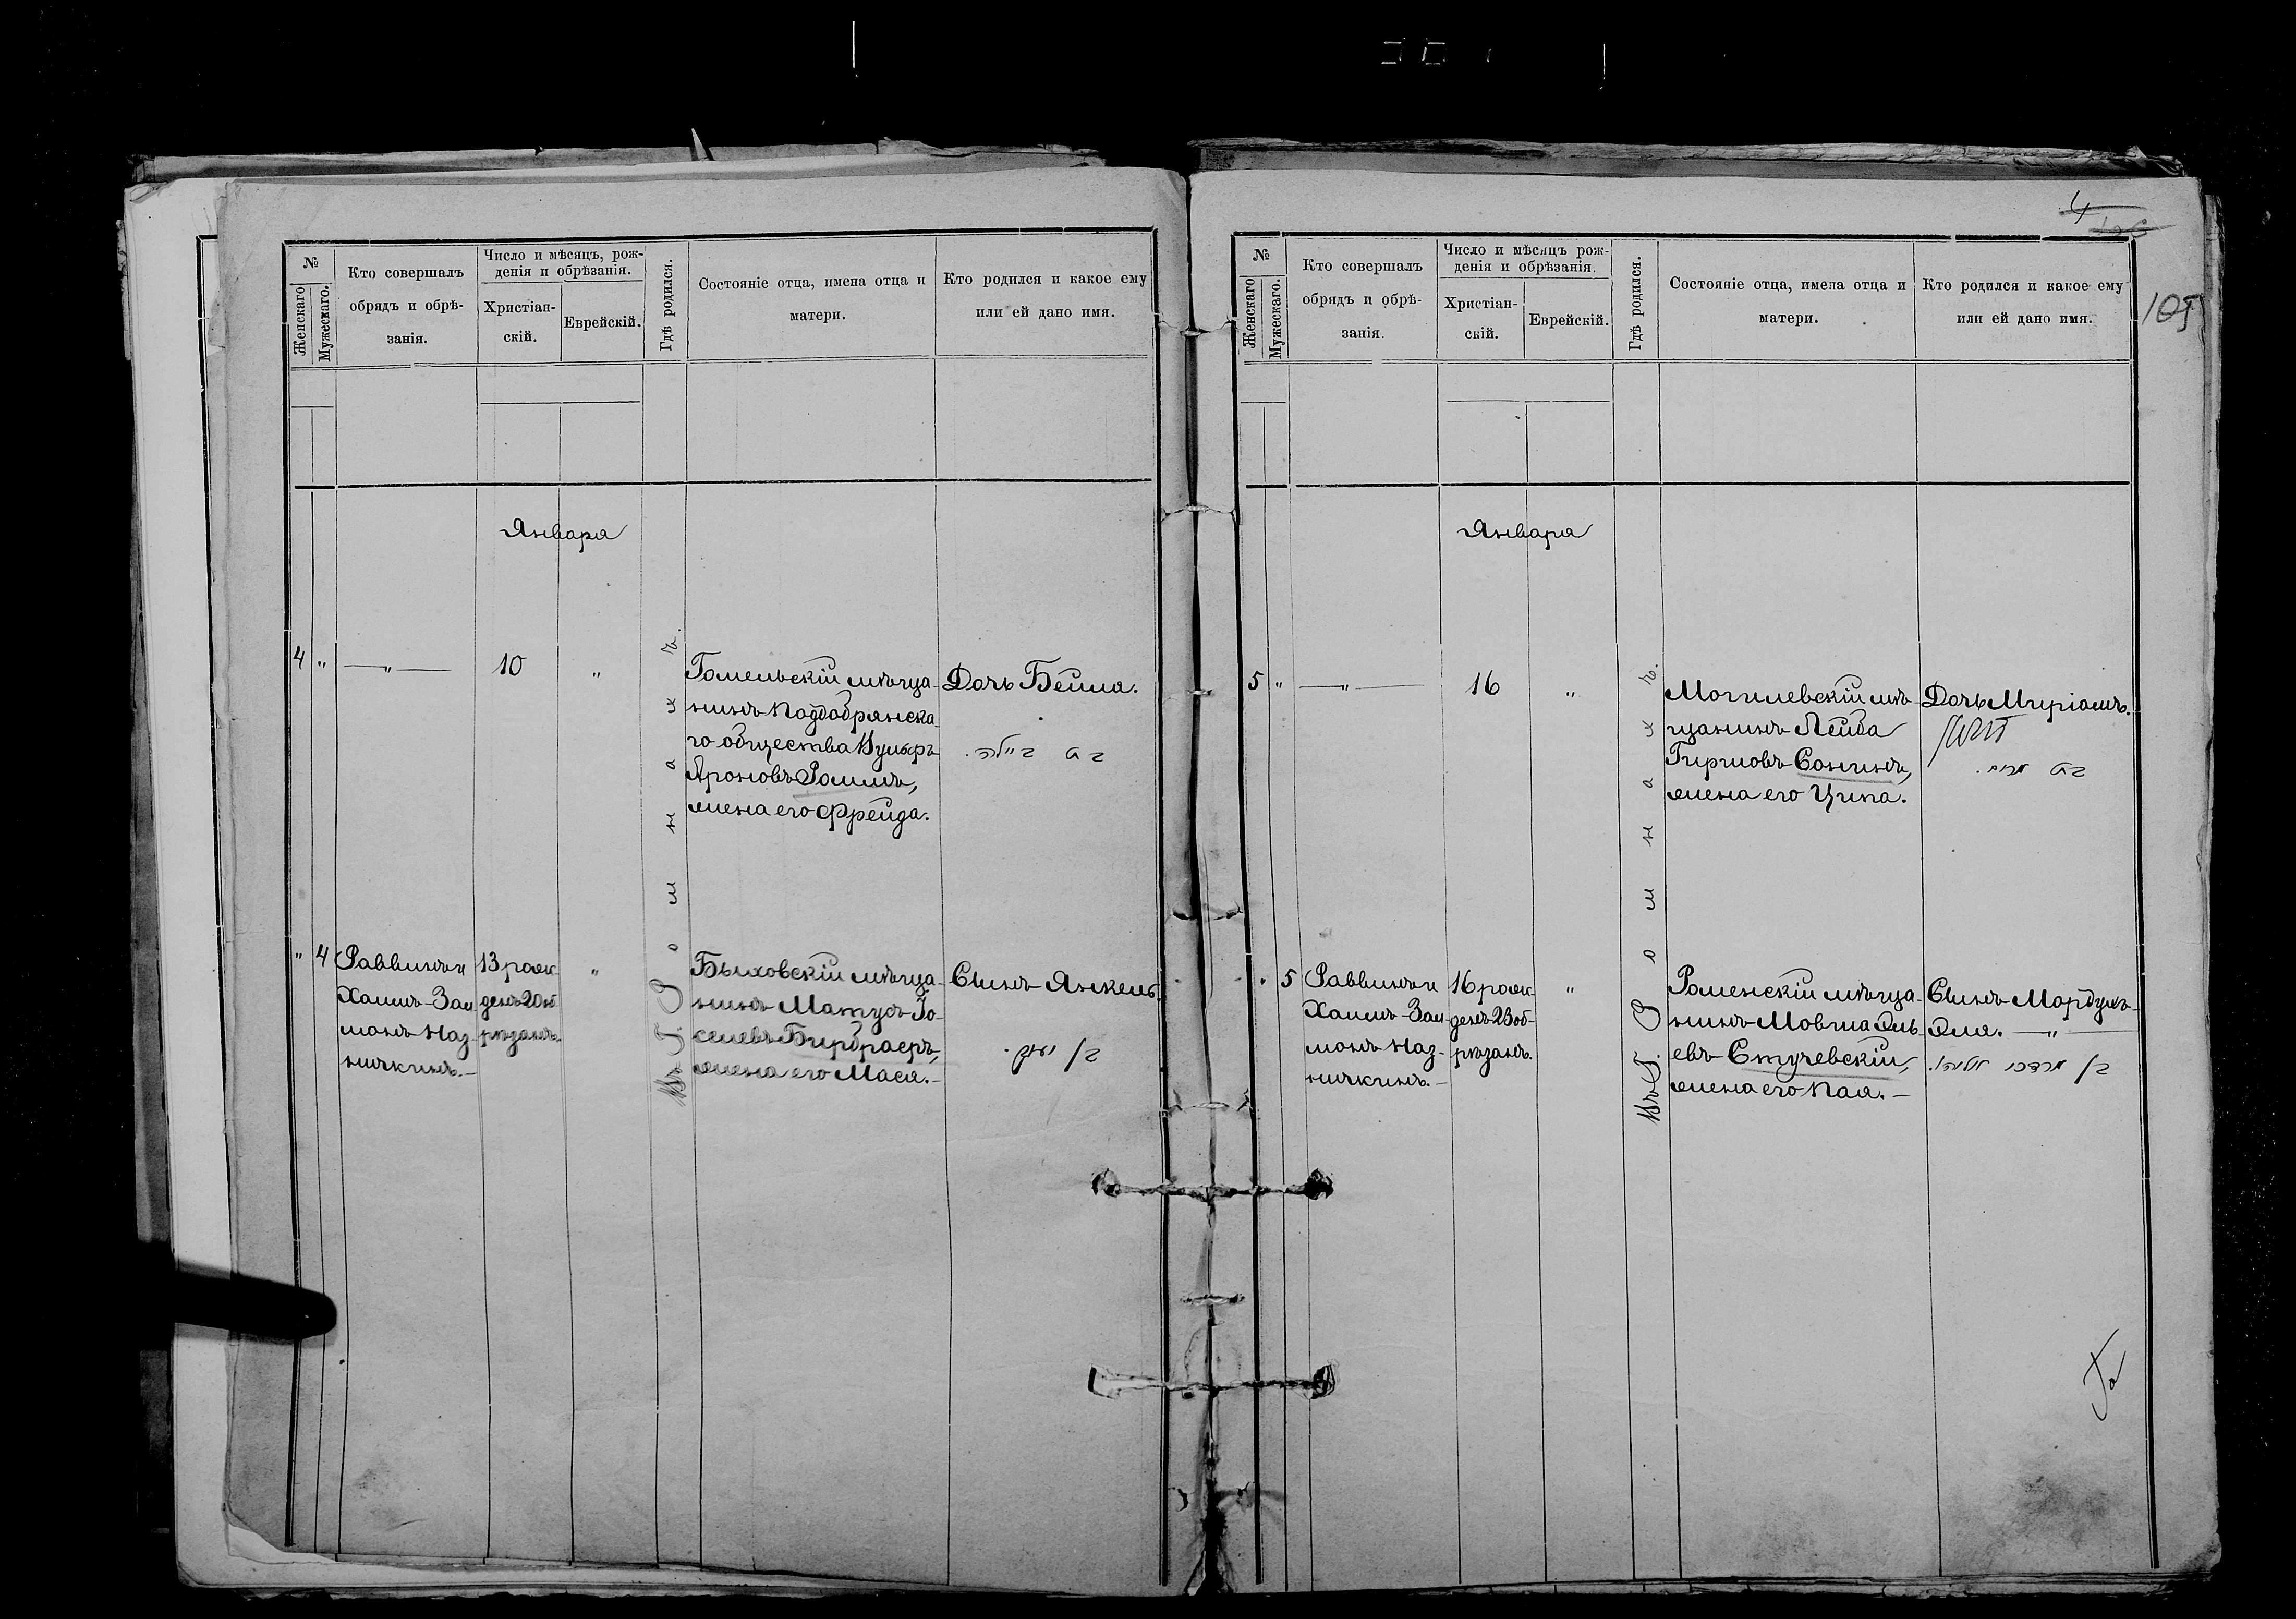 №
Женскаго
Мужескаго.
Кто совершалъ
обрядъ и обрѣ-
занія.
Число и мѣсяцъ, рож-
денія и обрѣзанія.
Христіан-
скій.
Еврейскій.
Гдѣ родился.
Состояніе отца, имена отца и
матери.
Кто родился и какое ему
или ей дано имя.
Января
4 " — " — 10 "
Гомельскій мѣща-
нинъ Поддобрянска-
го общества Вульфъ
Ароновъ
жена его Фрейда.
Дочь Бейля.
בת ביילה.
" 4
Раввинъ и
Хаимъ-Зал
манъ Наз-
ничкинъ.—
13 рож
денъ 20 об
рѣзанъ.
"
Быховскій мѣща-
нинъ Матусъ Іо-
селевъ Бирбраеръ,
жена его Мася.—
Сынъ Янкель.
בן יעקב.
Въ Г. Ромнахъ.
4
105
№
Женскаго
Мужескаго.
Кто совершалъ
обрядъ и обрѣ-
занія.
Число и мѣсяцъ рож-
денія и обрѣзанія.
Христіан-
скій.
Еврейскій.
Гдѣ родился.
Состояніе отца, имена отца и
матери.
Кто родился и какое ему
или ей дано имя.
Января
5 " — " — 16 "
Могилевскій мѣ-
щанинъ Лейба
Гиршовъ Сонинъ,
жена его Ципа.
Дочь Миріамъ.
בת
" 5
Раввинъ и
Хаимъ-Зал
манъ Наз-
ничкинъ.—
16 рож-
денъ 23 об-
рѣзанъ.
"
Роменскій мѣща-
нинъ Мовша Эль-
евъ Стучевскій,
жена его Пая.—
Сынъ Мордухъ-
Эля. — " —
בן מרדכי אליהו.
Въ Г. Ромнахъ.